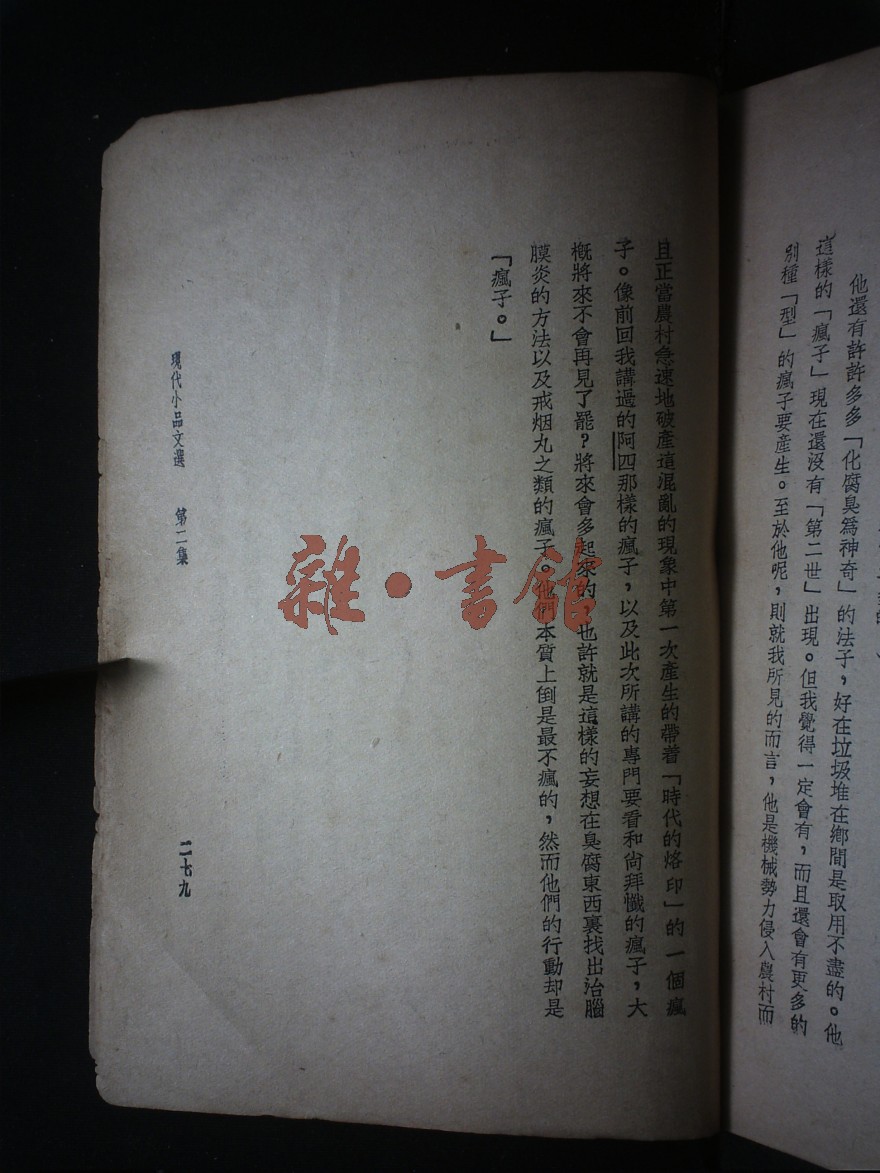 他還有許許多多「化腐臭爲神奇」的法子，好在垃圾堆在鄉間是取用不盡的。他
這樣的「瘋子」現在還沒有「第二世」出現。但我覺得一定會有，而且還會有更多的
別種「型」的瘋子要產生。至於他呢，則就我所見的而言，他是機械勢力侵入農村而
且正當農村急速地破產這混亂的現象中第一次產生的帶着「時代的烙印」的一個瘋
子。像前回我講過的阿四那樣的瘋子，以及此次所講的專門要看和尚拜懺的瘋子，大
概將來不會再見了罷？將來會多起來的，也許就是這樣的妄想在臭腐東西裏找出治腦
膜炎的方法以及戒烟丸之類的瘋子。他們本質上倒是最不瘋的，然而他們的行動却是
「瘋子。」
現代小品文選 第二集
二七九
雜・書館